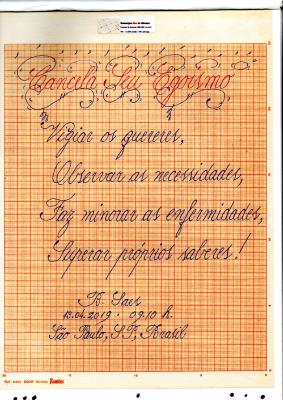 Cancela Seu Egoísmo
Vigiar os quereres,
Observar as necessidades,
Faz minorar as enfermidades,
Superar próprios saberes!
B. Saes
18.04.2019 - 09:10 h.
São Paulo, S.P., Brasil